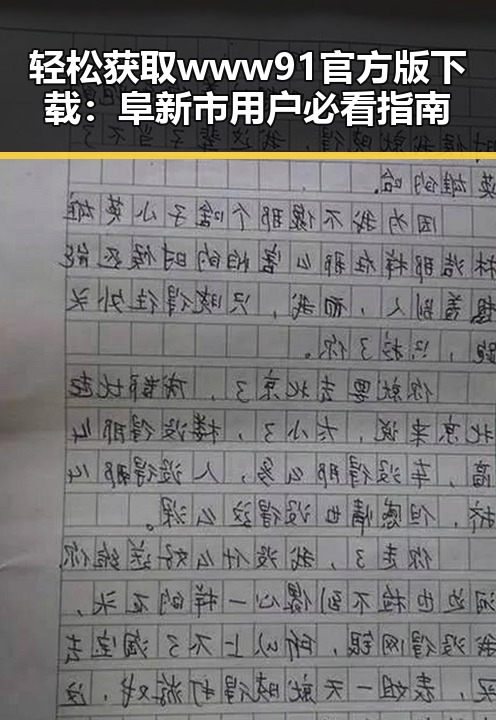 轻松获取www91官方版下
载：阜新市用户必看指南
英雄的哈。
因为我不像那个啥子小英雄
林浩那样在那么害怕的时候还能
想着别人，而我，只晓得往外头
跑，了你。
你就要去北京了，成都比起
北京来说，太小了，楼没得那么
高，车没得那么多，人没得那么
，但感情也没得这么深。
你走了，我没什么好送给你
河边也捡不到像心一样的石头，
我没得网银，所以上不了淘宝去
买，表姐一天就晓得打游戏，这